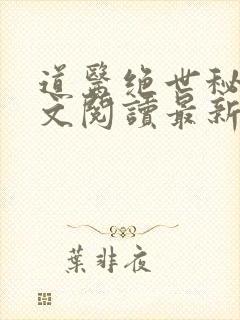 道醫絕世秘
文閱讀最新
葉非夜